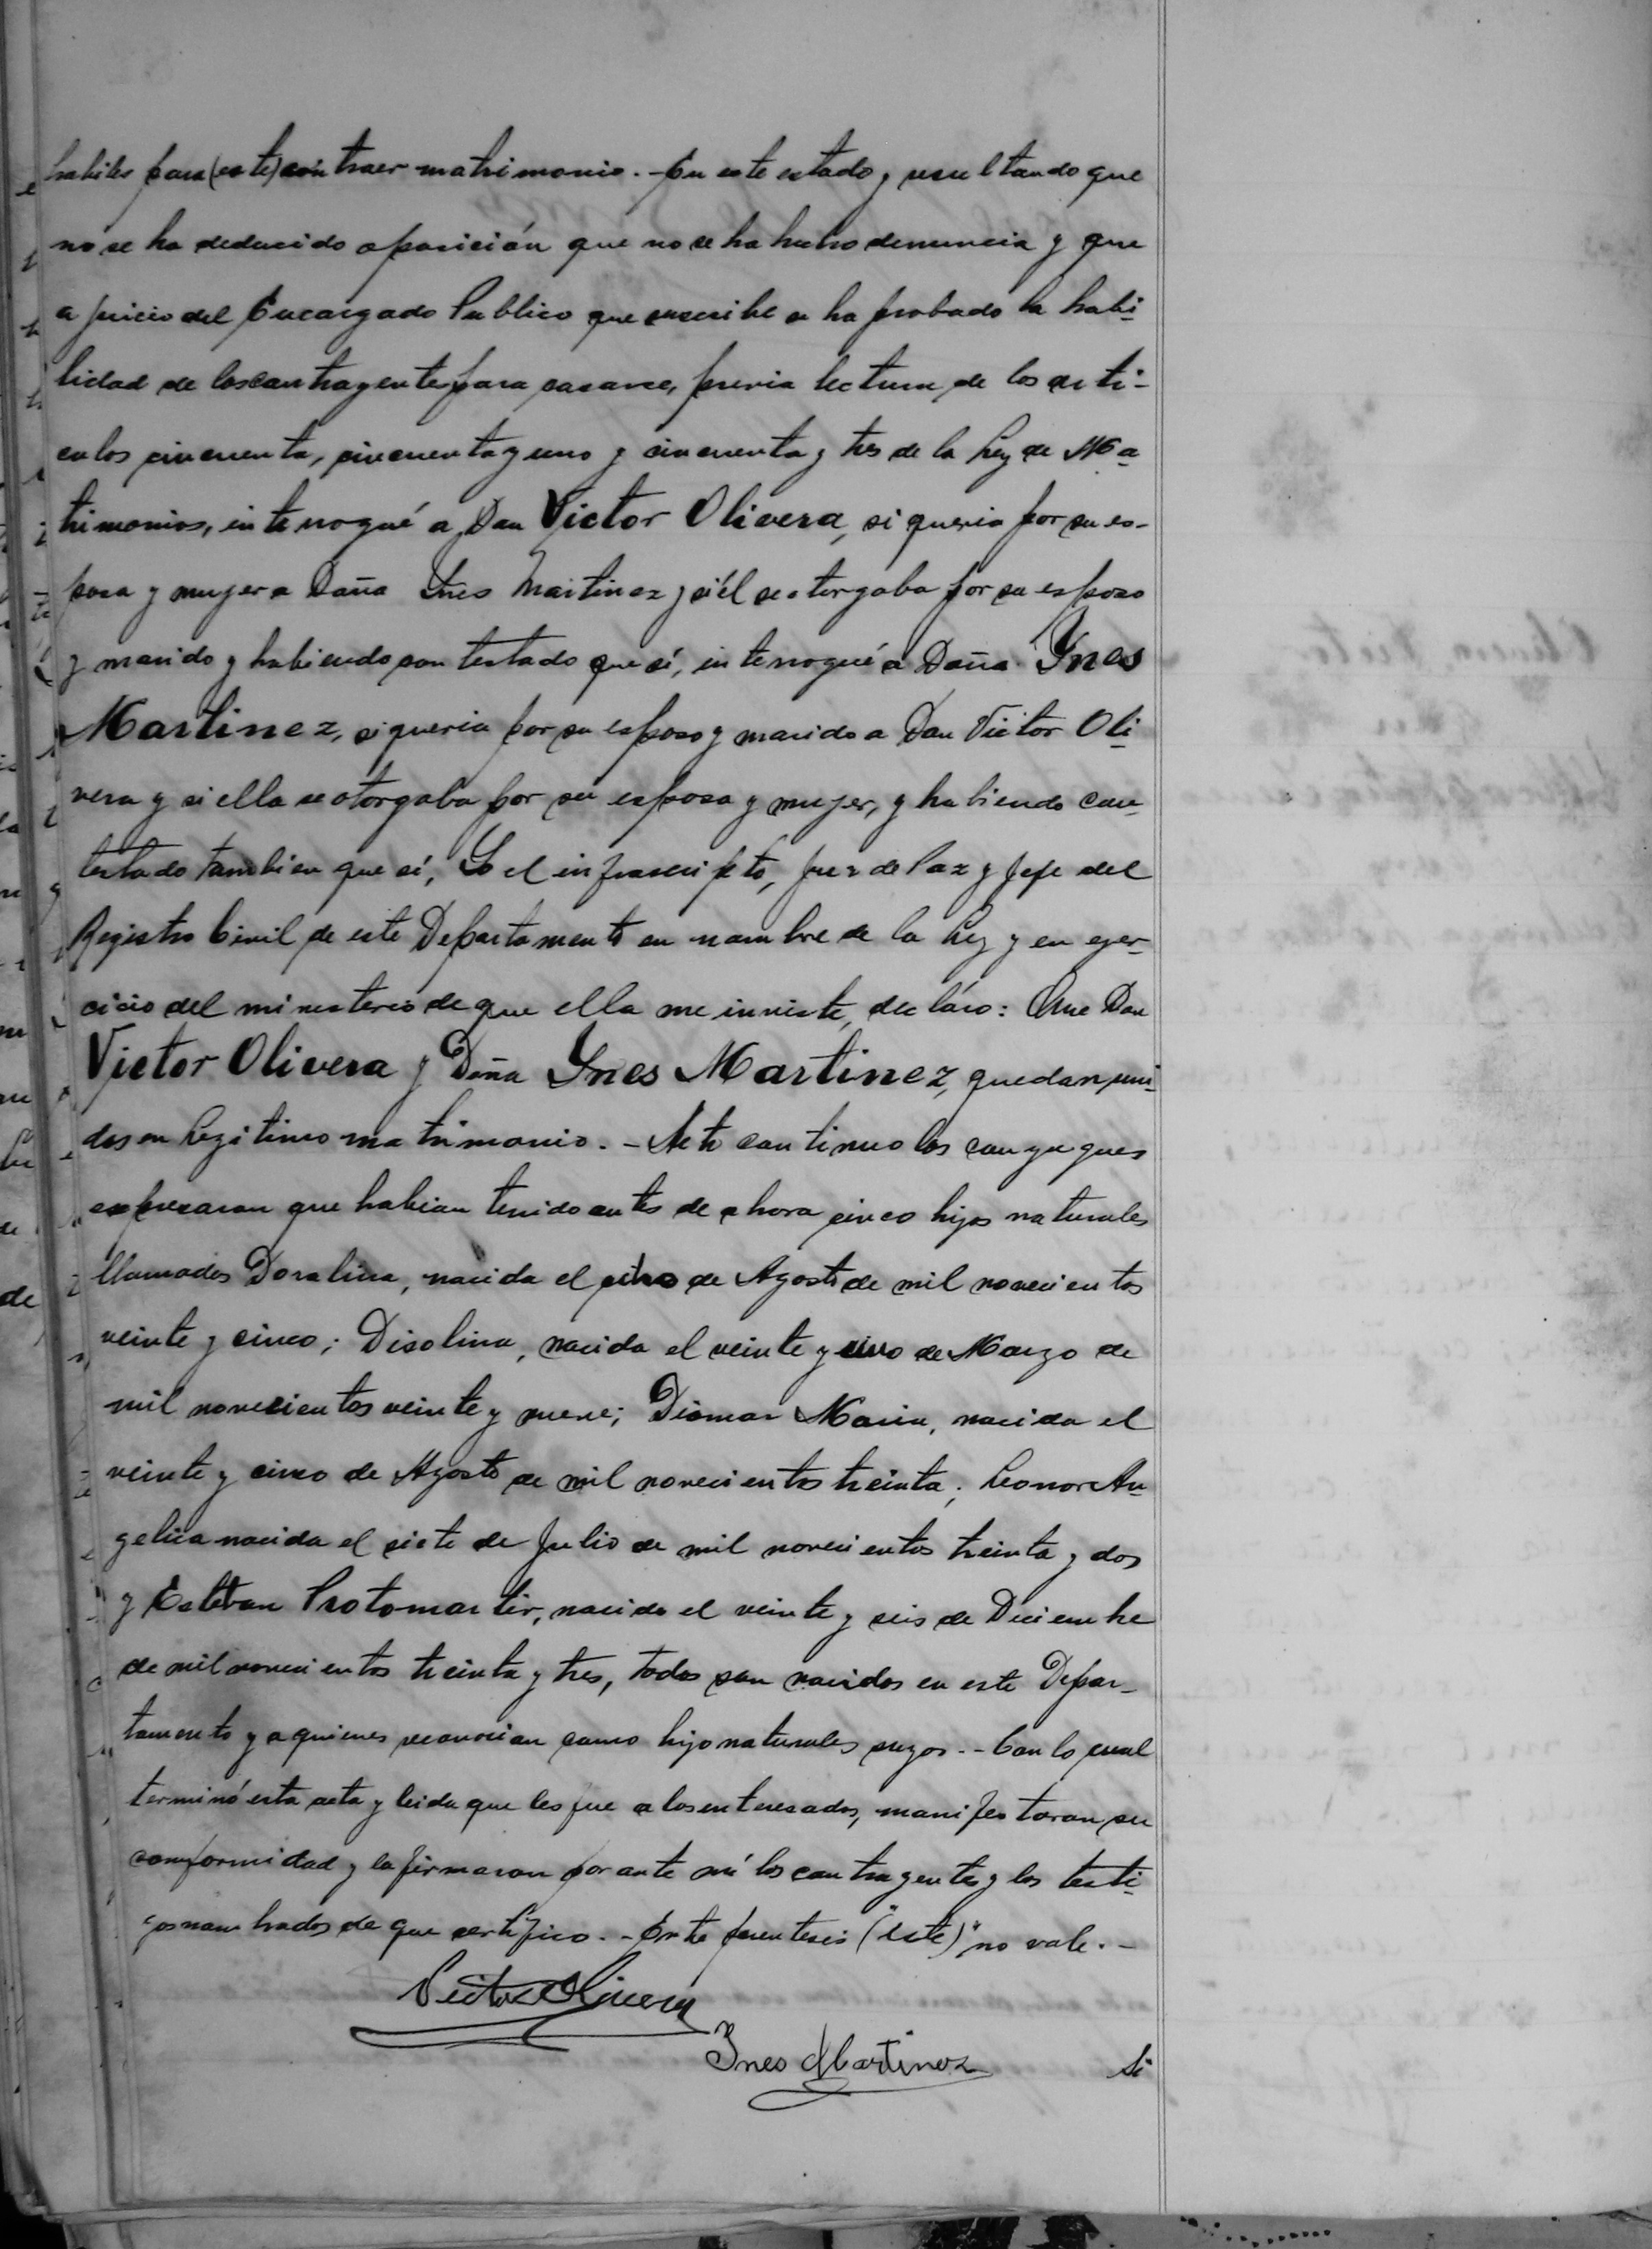 habiles para (este) contraer matrimonio.- En este estado y resultando que
no se ha deducido oposición que no se ha hecho denuncia y que
a juicio del Encargado Publico que suscribe se ha probado la habi-
lidad de los contrayentes para casarse, previa lectura de los arti-
culos cincuenta, cincuenta y uno y cincuenta y tres de la Ley de Ma-
trimonios, interrogué a Don Victor Olivera, si queria por su es-
posa y mujer a Doña Ines Martinez y si él se otorgaba por su esposo
y marido y habiendo contestado que sí, interrogué a Doña Ynes
Martinez, si queria por su esposo y marido a Don Victor Oli-
vera y si ella se otorgaba por su esposa y mujer, y habiendo con-
testado tambien que sí, Yo el infrascripto, Juez de Paz y Jefe del
Registro Civil de este Departamento en nombre de la Ley y en ejer-
cicio del ministerio de que ella me inviste, declaro: Que Don
Victor Olivera y Doña Ynes Martinez, quedan uni-
dos en legitimo matrimonio.- Acto continuo los conyugues
expresaron que habian tenido antes de ahora cinco hijos naturales
llamados Doralina, nacida el de Agosto de mil novecientos
veinte y cinco; Disolina, nacida el veinte y uno de Marzo de
mil novecientos veinte y nueve; Diomar Maria, nacida el
veinte y cinco de Agosto de mil novecientos treinta; Leonor An-
gelica nacida el siete de Julio de mil novecientos treinta y dos
y Esteban Protomartir, nacido el veinte y seis de Diciembre
de mil novecientos treinta y tres, todos son nacidos en este Depar-
tamento y a quienes reconocian como hijo naturales suyos.-- Con lo cual
terminó esta acta y leida que les fue a los enteresados, manifestaron su
conformidad y la firmaron por ante mí los contrayentes y los testi-
gos nombrados de que certifico.- Entre parentesis ("este)" no vale.-
Victor Olivera
Ines Martinez
Si